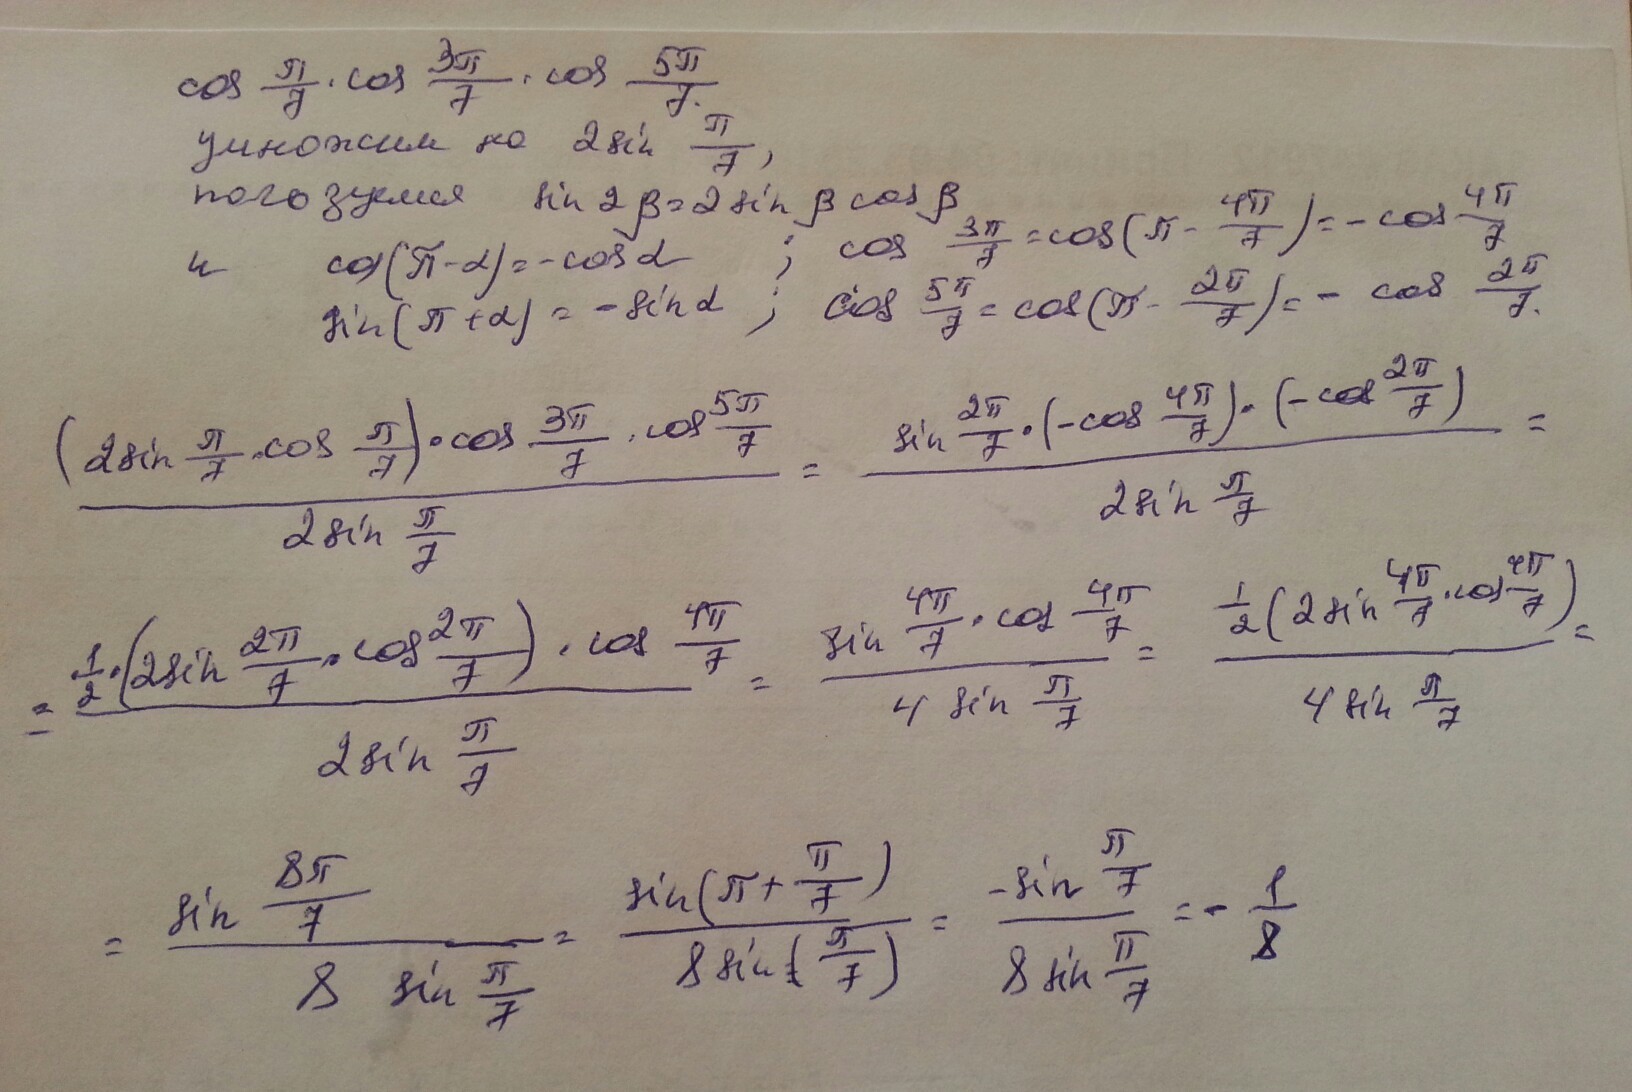 cos π/7 · cos 3π/7 · cos 5π/7.
умножим на 2sin π/7,
sin 2β = 2 sin β cos β
и cos(π-α) = -cos α ; cos 3π/7 = cos(π - 4π/7) = - cos 4π/7
sin(π+α) = -sin α ; cos 5π/7 = cos(π - 2π/7) = - cos 2π/7.
(2sin π/7 · cos π/7) · cos 3π/7 · cos 5π/7 / 2sin π/7 = sin 2π/7 · (-cos 4π/7) · (-cos 2π/7) / 2sin π/7 =
= 1/2 · (2sin 2π/7 · cos 2π/7) · cos 4π/7 / 2sin π/7 = sin 4π/7 · cos 4π/7 / 4 sin π/7 = 1/2 (2sin 4π/7 · cos 4π/7) / 4 sin π/7 =
= sin 8π/7 / 8 sin π/7 = sin(π + π/7) / 8 sin(π/7) = -sin π/7 / 8 sin π/7 = - 1/8